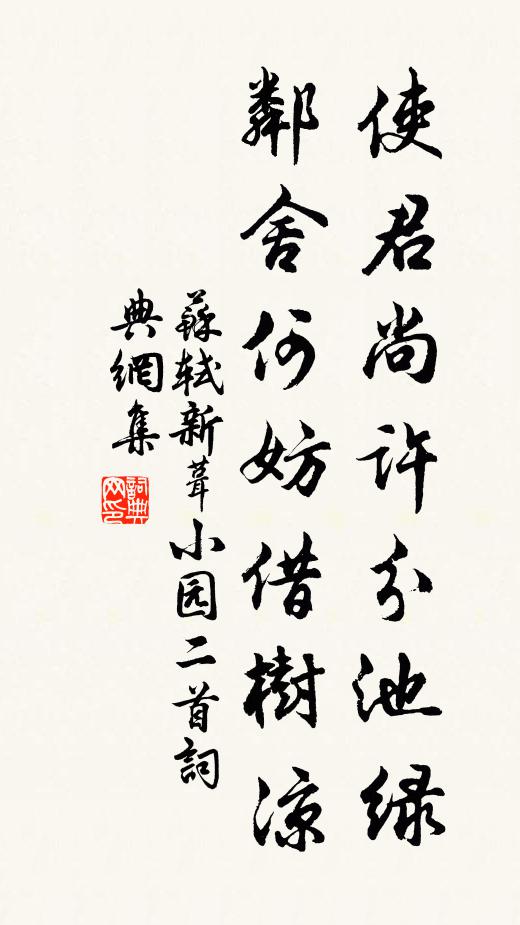 使君尚許分池緑
鄰舍何妨借樹涼
蘇軾新葺小园二首詞
典網集
詞典网印